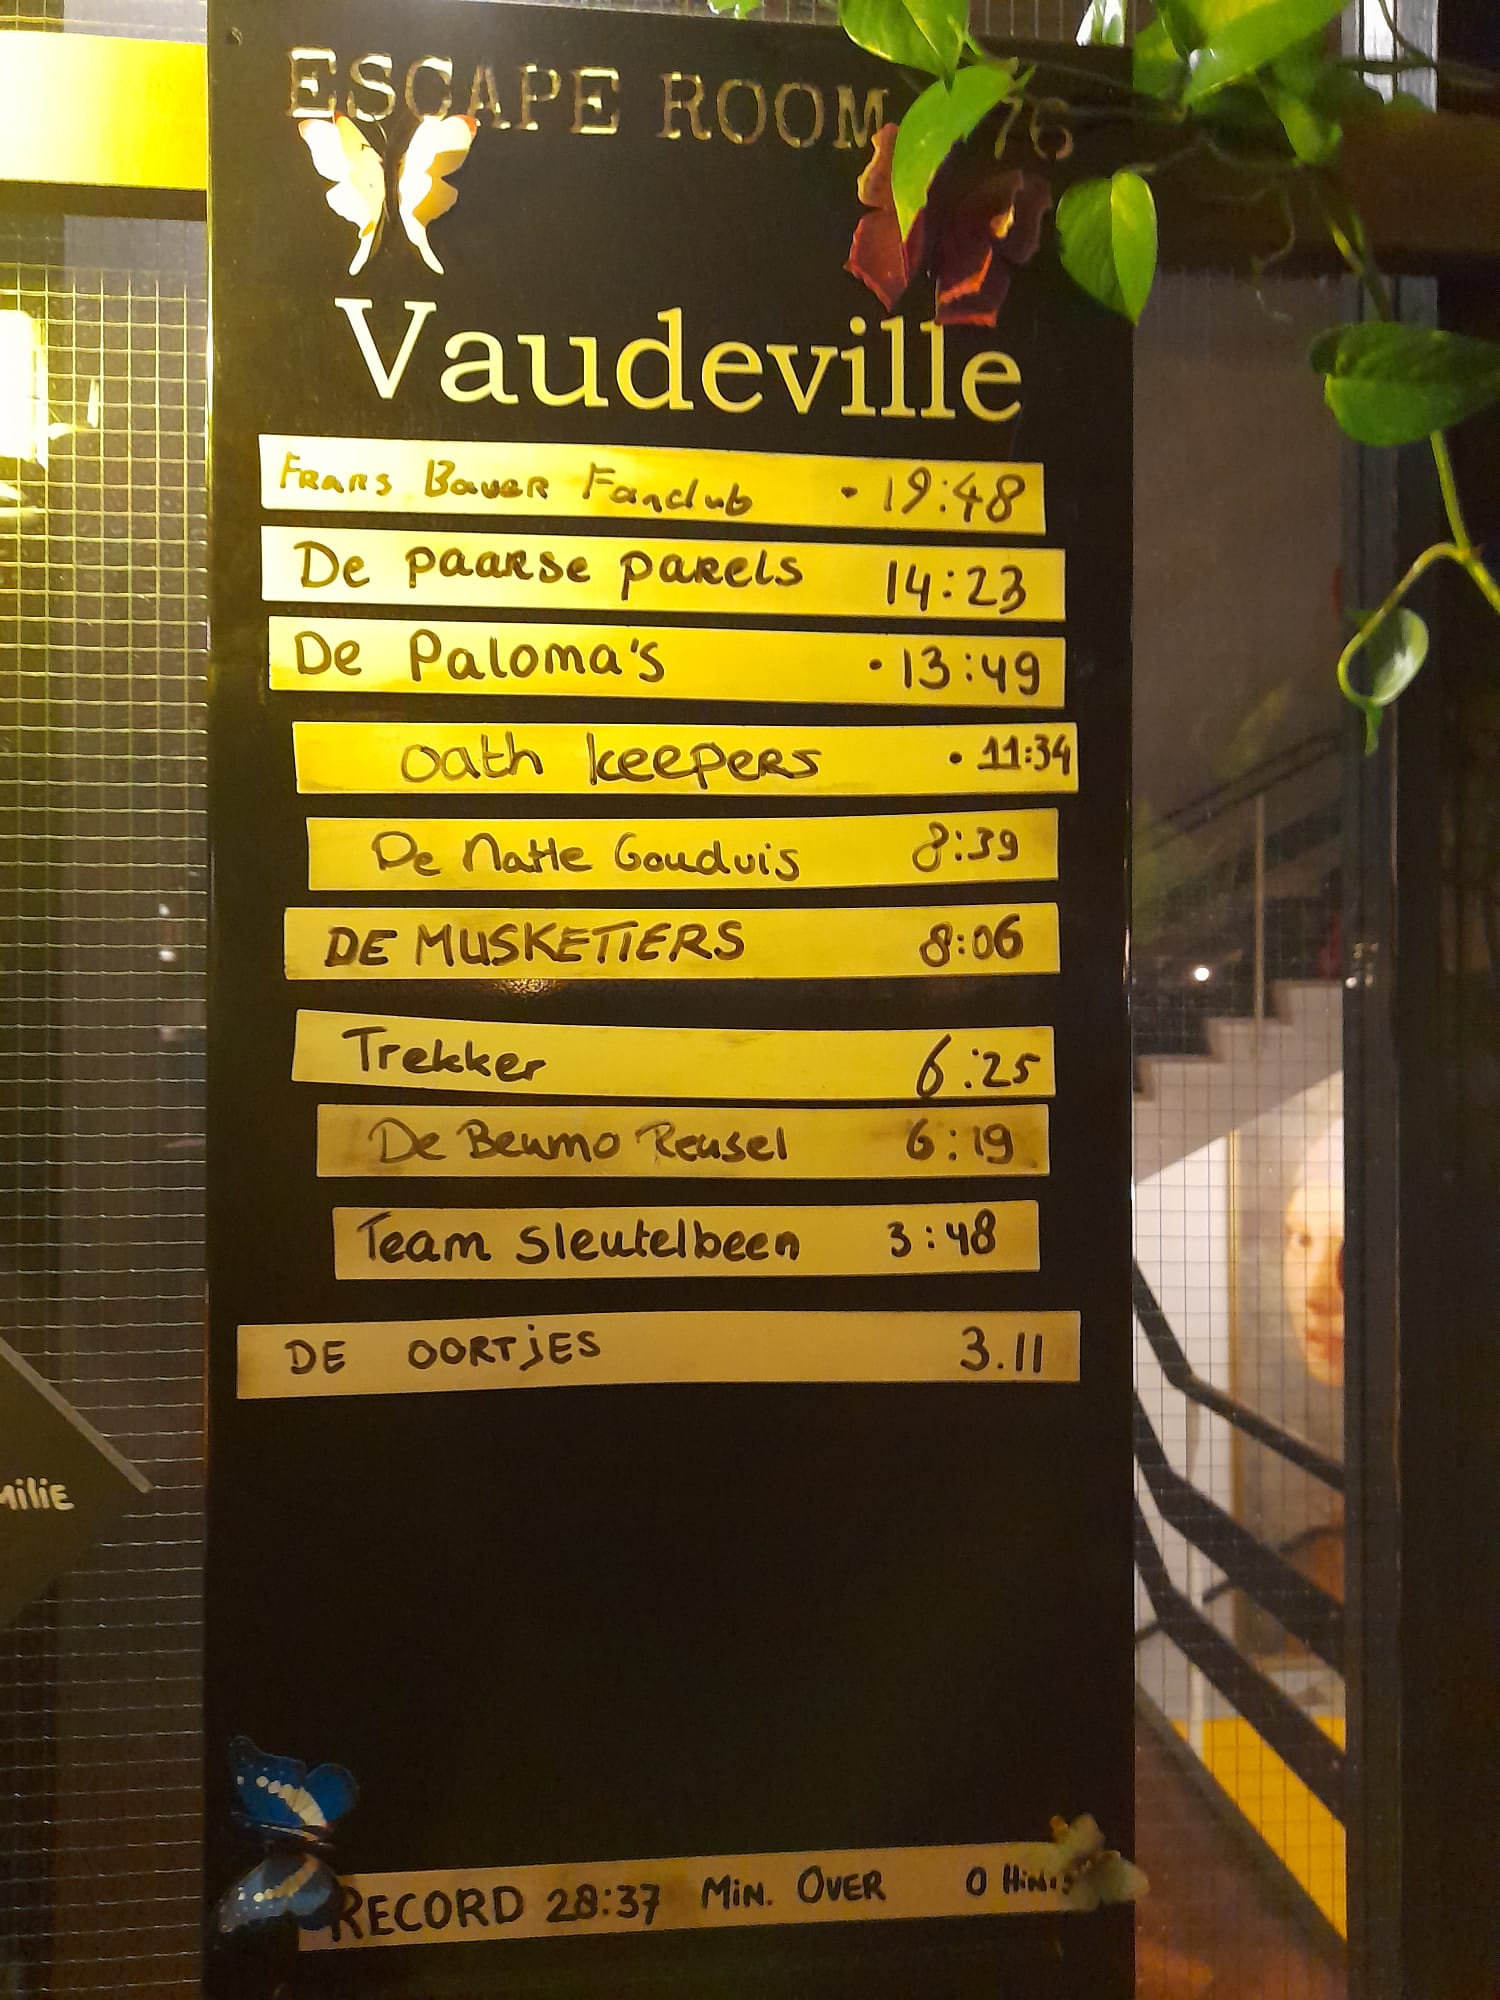 ESCAPE ROOM 76
Vaudeville
Frans Bauer Fanclub • 19:48
De paarse parels 14:23
De Paloma's • 13:49
oath keepers • 11:34
De Natte Gouduis 8:39
DE MUSKETIERS 8:06
Trekker 6:25
De Beumo Reusel 6:19
Team Sleutelbeen 3:48
DE OORTjES 3.11
MiliE
RECORD 28:37 MiN. OVER 0 HiNTS